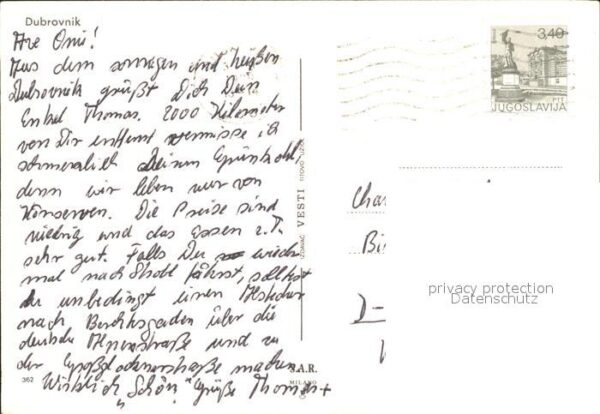 Dubrovnik
Ave Omi!
Aus dem sonnigen und heißen
Dubrovnik grüßt Dich Dein
Enkel Thomas. 2000 Kilometer
von Dir entfernt vermisse ich
schmerzlich Deinen Grünkohl,
denn wir leben nur von
Konserven. Die Preise sind
niedrig und das Essen z.T.
sehr gut. Falls Du wieder
mal nach Strobl fährst, solltest
du unbedingt einen Abstecher
nach Berchtesgaden über die
deutsche Alpenstraße und zu
der Großglocknerstraße machen
Wirklich "Schön" Grüße Thomas
362
3,40
JUGOSLAVIJA
PTT
IZDAVAČ VESTI TITOVO UŽICE
S.A.R.
MILANO
Cha
Bi
D-
privacy protection
Datenschutz